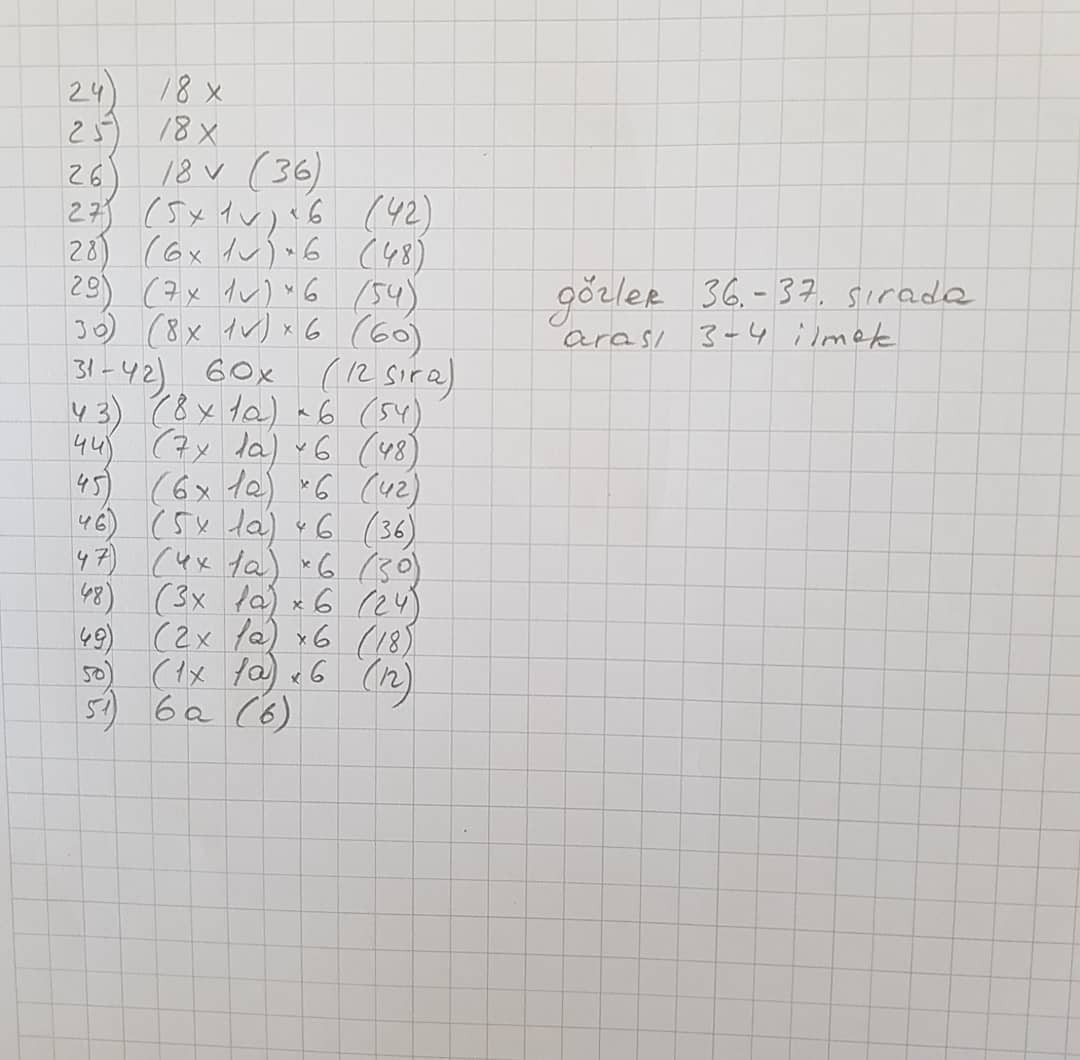 24) 18 x
25) 18x
26) 18 v (36)
27) (5x 1v) x 6 (42)
28) (6x 1v) x 6 (48)
29) (7x 1v) x 6 (54)
30) (8x 1v) x 6 (60)
31-42) 60x (12 sıra)
43) (8x 1a) x 6 (54)
44) (7x 1a) x 6 (48)
45) (6x 1a) x 6 (42)
46) (5x 1a) x 6 (36)
47) (4x 1a) x 6 (30)
48) (3x 1a) x 6 (24)
49) (2x 1a) x 6 (18)
50) (1x 1a) x 6 (12)
51) 6a (6)
gözler 36.-37. sırada
arası 3-4 ilmek